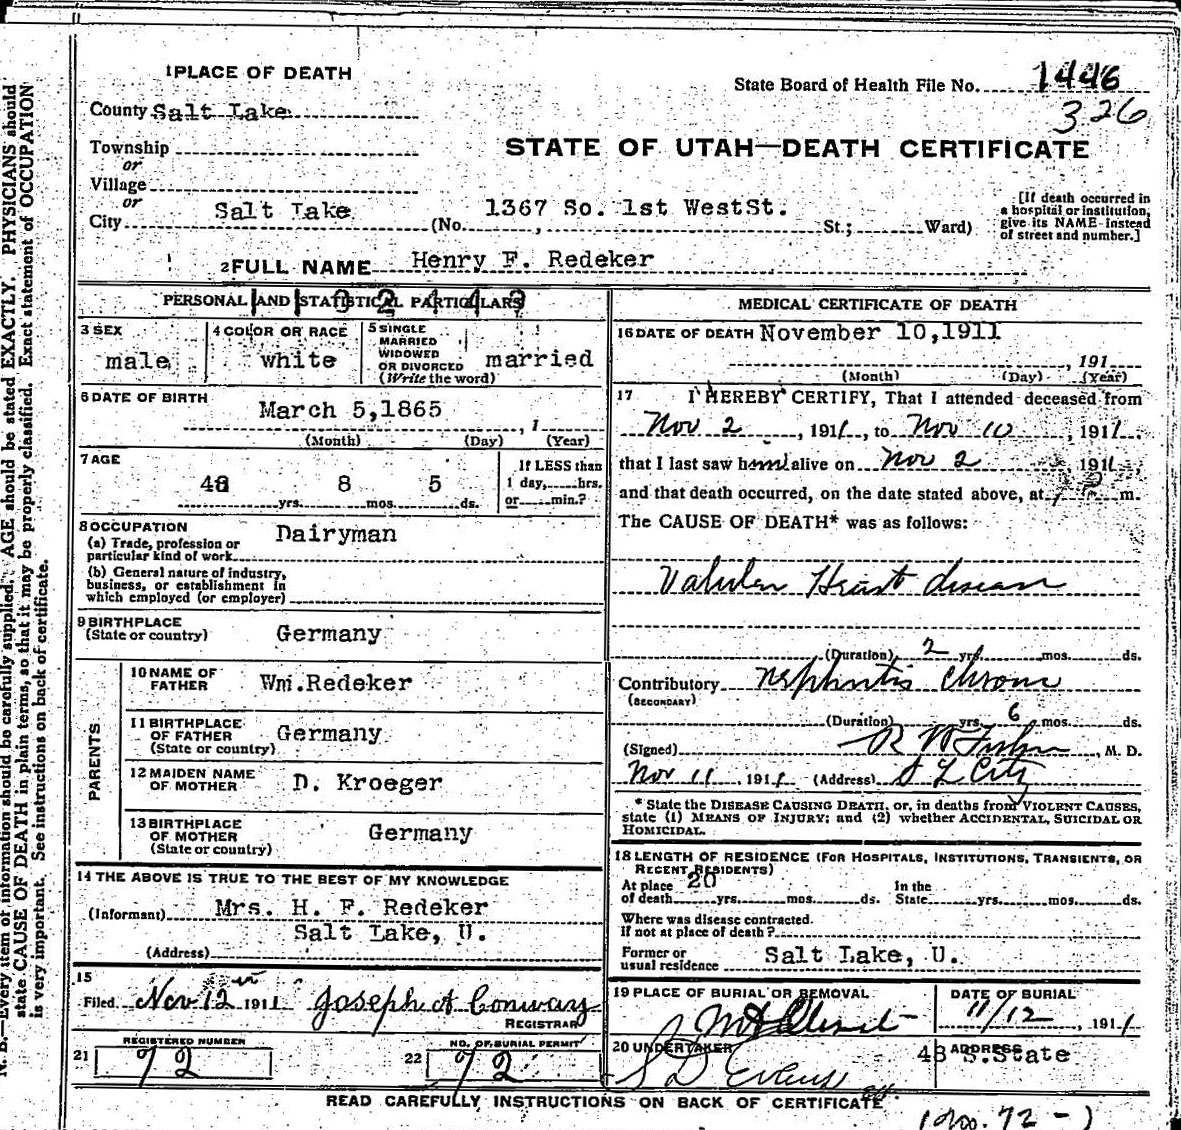 N. B.—Every item of information should be carefully supplied. AGE should be stated EXACTLY. PHYSICIANS should
state CAUSE OF DEATH in plain terms, so that it may be properly classified. Exact statement of OCCUPATION
is very important. See instructions on back of certificate.
1 PLACE OF DEATH
State Board of Health File No. 1446
326
County Salt Lake
STATE OF UTAH—DEATH CERTIFICATE
Township
or
Village
or
City Salt Lake (No. 1367 So. 1st WestSt. St.; Ward)
[If death occurred in
a hospital or institution,
give its NAME instead
of street and number.]
2 FULL NAME Henry F. Redeker
PERSONAL AND STATISTICAL PARTICULARS
3 SEX
male
4 COLOR OR RACE
white
5 SINGLE
MARRIED
WIDOWED
OR DIVORCED
(Write the word)
married
6 DATE OF BIRTH
March 5,1865
, 1
(Month) (Day) (Year)
7 AGE
48 yrs. 8 mos. 5 ds.
If LESS than
1 day, hrs.
or min.?
8 OCCUPATION
(a) Trade, profession or
particular kind of work
Dairyman
(b) General nature of industry,
business, or establishment in
which employed (or employer)
9 BIRTHPLACE
(State or country)
Germany
PARENTS
10 NAME OF
FATHER
Wm. Redeker
11 BIRTHPLACE
OF FATHER
(State or country)
Germany
12 MAIDEN NAME
OF MOTHER
D. Kroeger
13 BIRTHPLACE
OF MOTHER
(State or country)
Germany
14 THE ABOVE IS TRUE TO THE BEST OF MY KNOWLEDGE
(Informant) Mrs. H. F. Redeker
Salt Lake, U.
(Address)
15
Filed Nov. 12 1911 Joseph A Conway
REGISTRAR
REGISTERED NUMBER
21 72
NO. OF BURIAL PERMIT
22 72
MEDICAL CERTIFICATE OF DEATH
16 DATE OF DEATH November 10,1911
, 191
(Month) (Day) (Year)
17 I HEREBY CERTIFY, That I attended deceased from
Nov 2, 1911, to Nov 10, 1911,
that I last saw him alive on Nov 2, 1911,
and that death occurred, on the date stated above, at m.
The CAUSE OF DEATH* was as follows:
Valvular Heart disease
(Duration) 2 yrs. mos. ds.
Contributory Nephritis Chronic
(SECONDARY)
(Duration) yrs. 6 mos. ds.
(Signed) R W Fisher, M. D.
Nov 11, 1911 (Address) S L City
* State the DISEASE CAUSING DEATH, or, in deaths from VIOLENT CAUSES,
state (1) MEANS OF INJURY; and (2) whether ACCIDENTAL, SUICIDAL OR
HOMICIDAL.
18 LENGTH OF RESIDENCE (FOR HOSPITALS, INSTITUTIONS, TRANSIENTS, OR
RECENT RESIDENTS)
At place
of death 20 yrs. mos. ds.
In the
State yrs. mos. ds.
Where was disease contracted.
if not at place of death?
Former or
usual residence Salt Lake, U.
19 PLACE OF BURIAL OR REMOVAL
Mt Olivet
DATE OF BURIAL
11/12, 1911
20 UNDERTAKER
S D Evans
ADDRESS
48 S. State
READ CAREFULLY INSTRUCTIONS ON BACK OF CERTIFICATE
(No. 72 - )